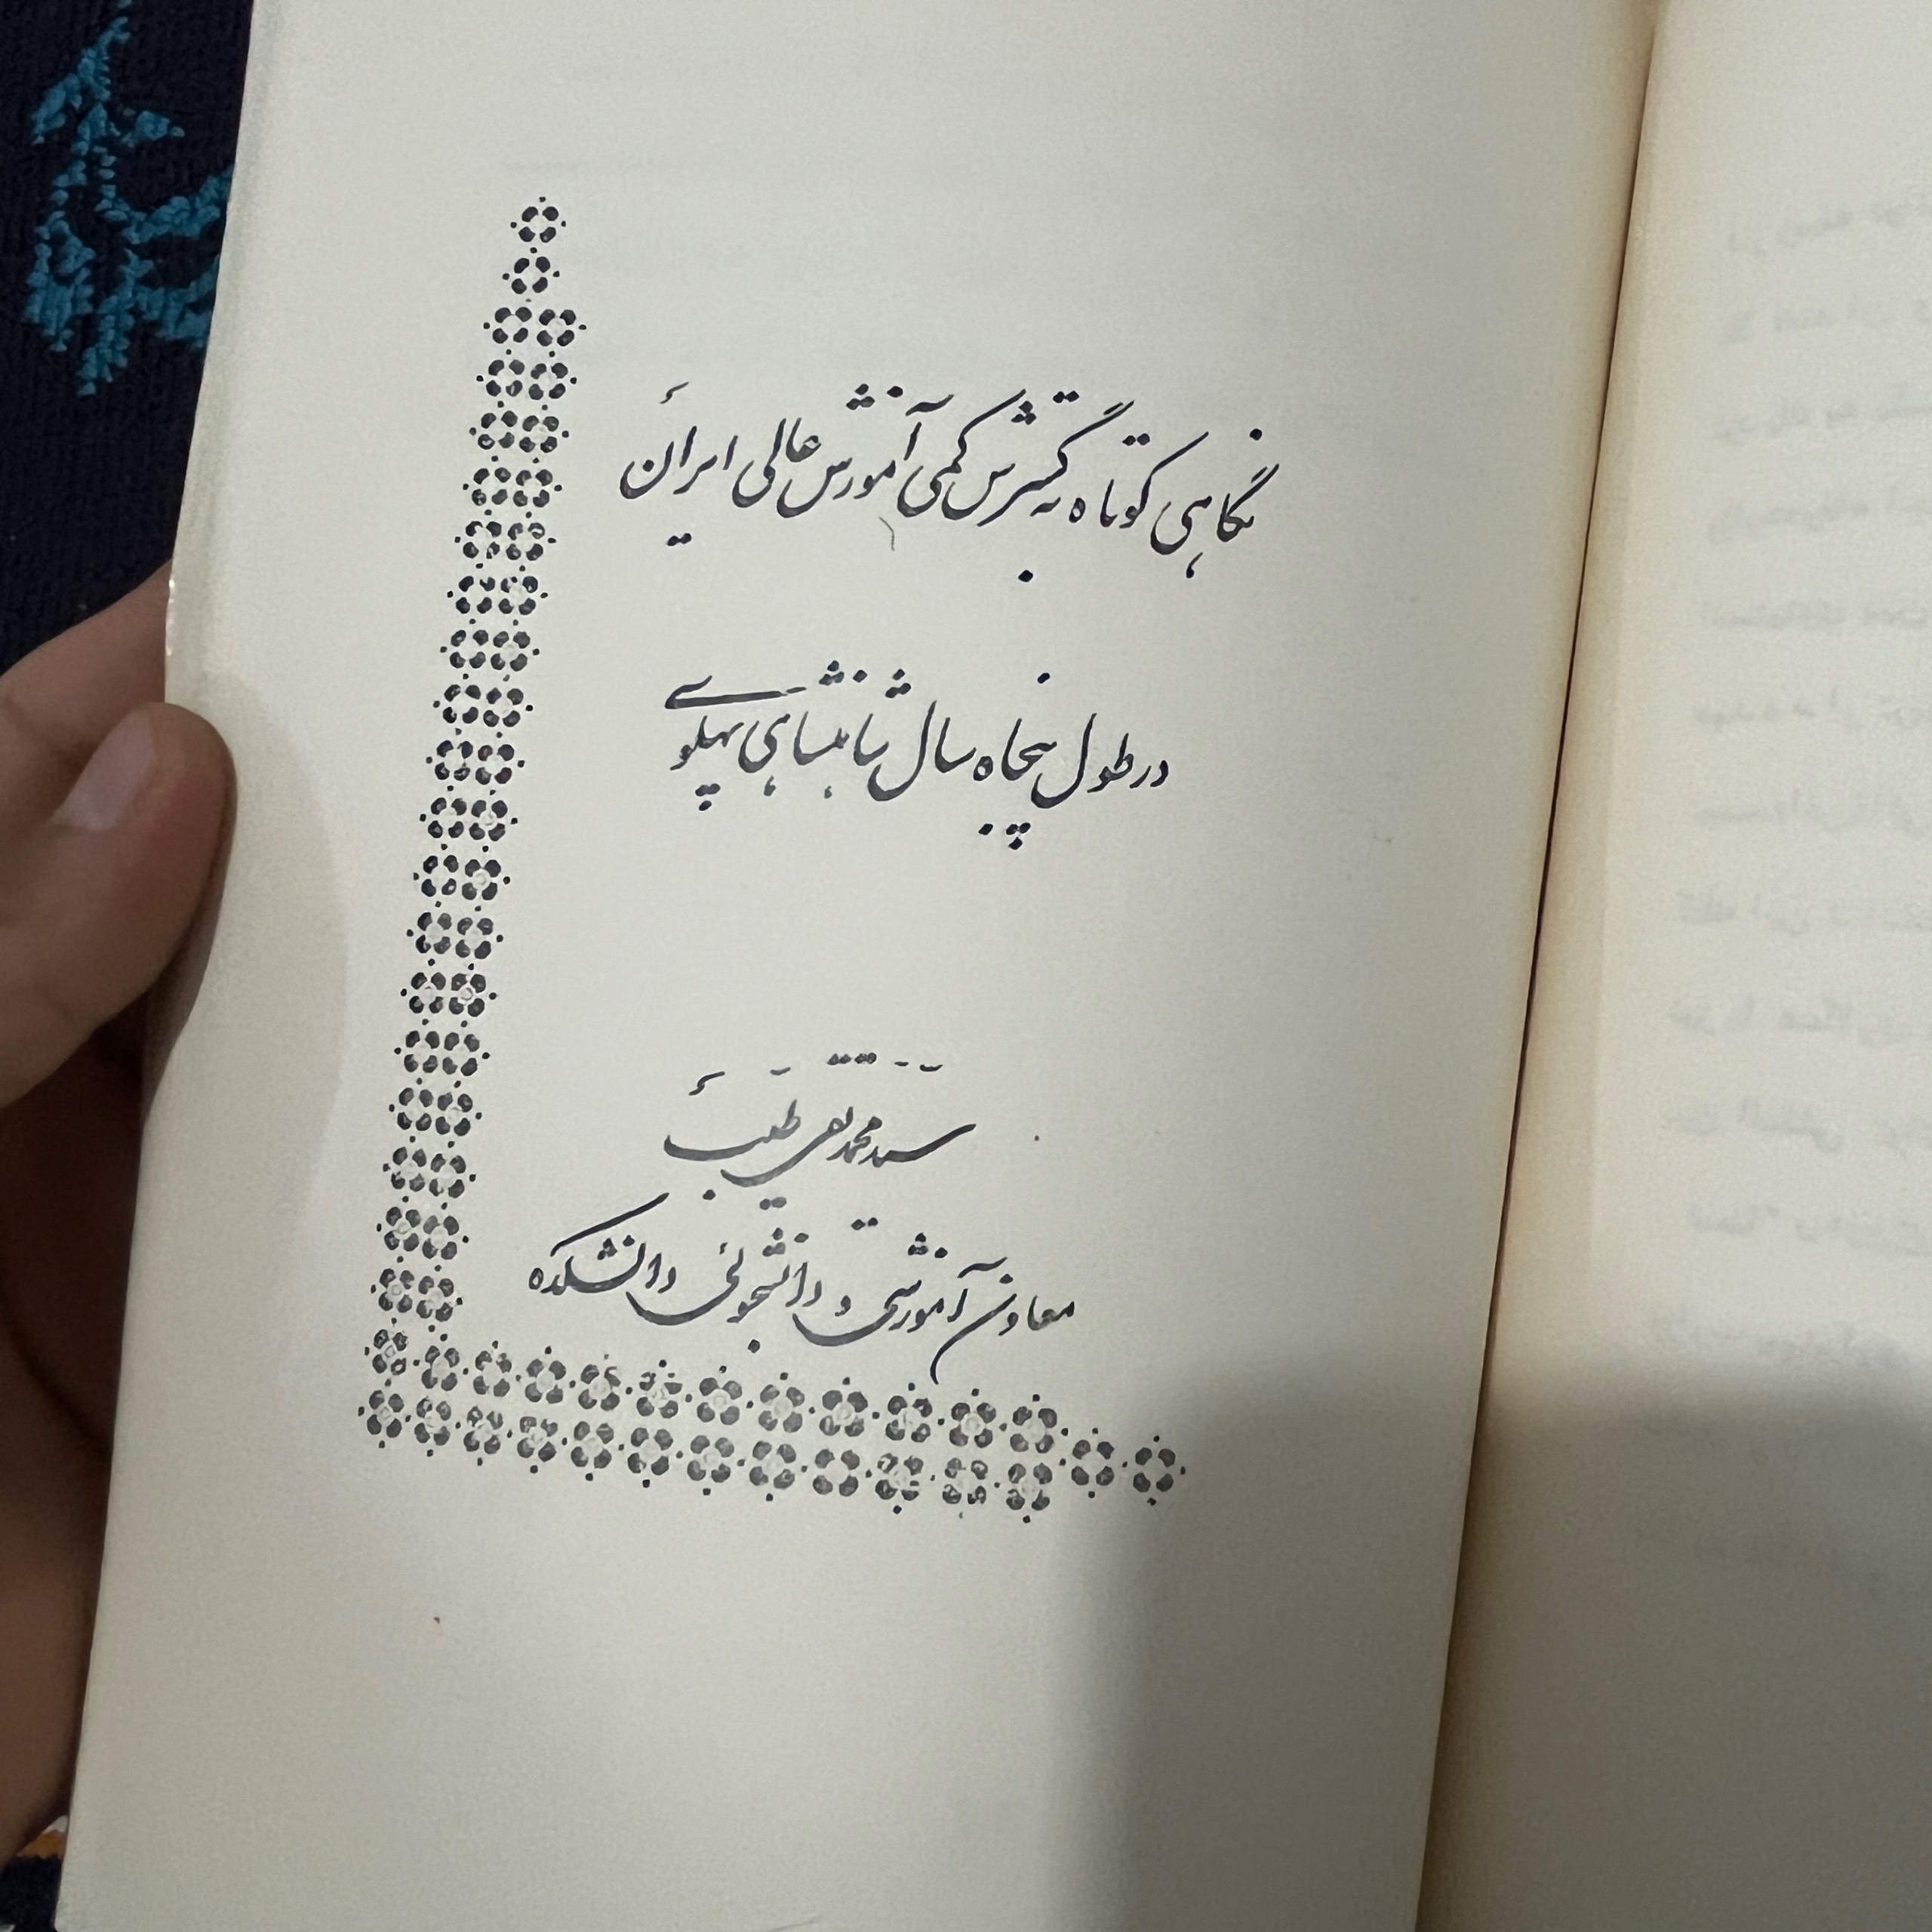 نگاهی کوتاه به گسترش کمی آموزش عالی ایران
در طول پنجاه سال شاهنشاهی پهلوی
سید محمد تقی طیب
معاون آموزشی و دانشجوئی دانشکده